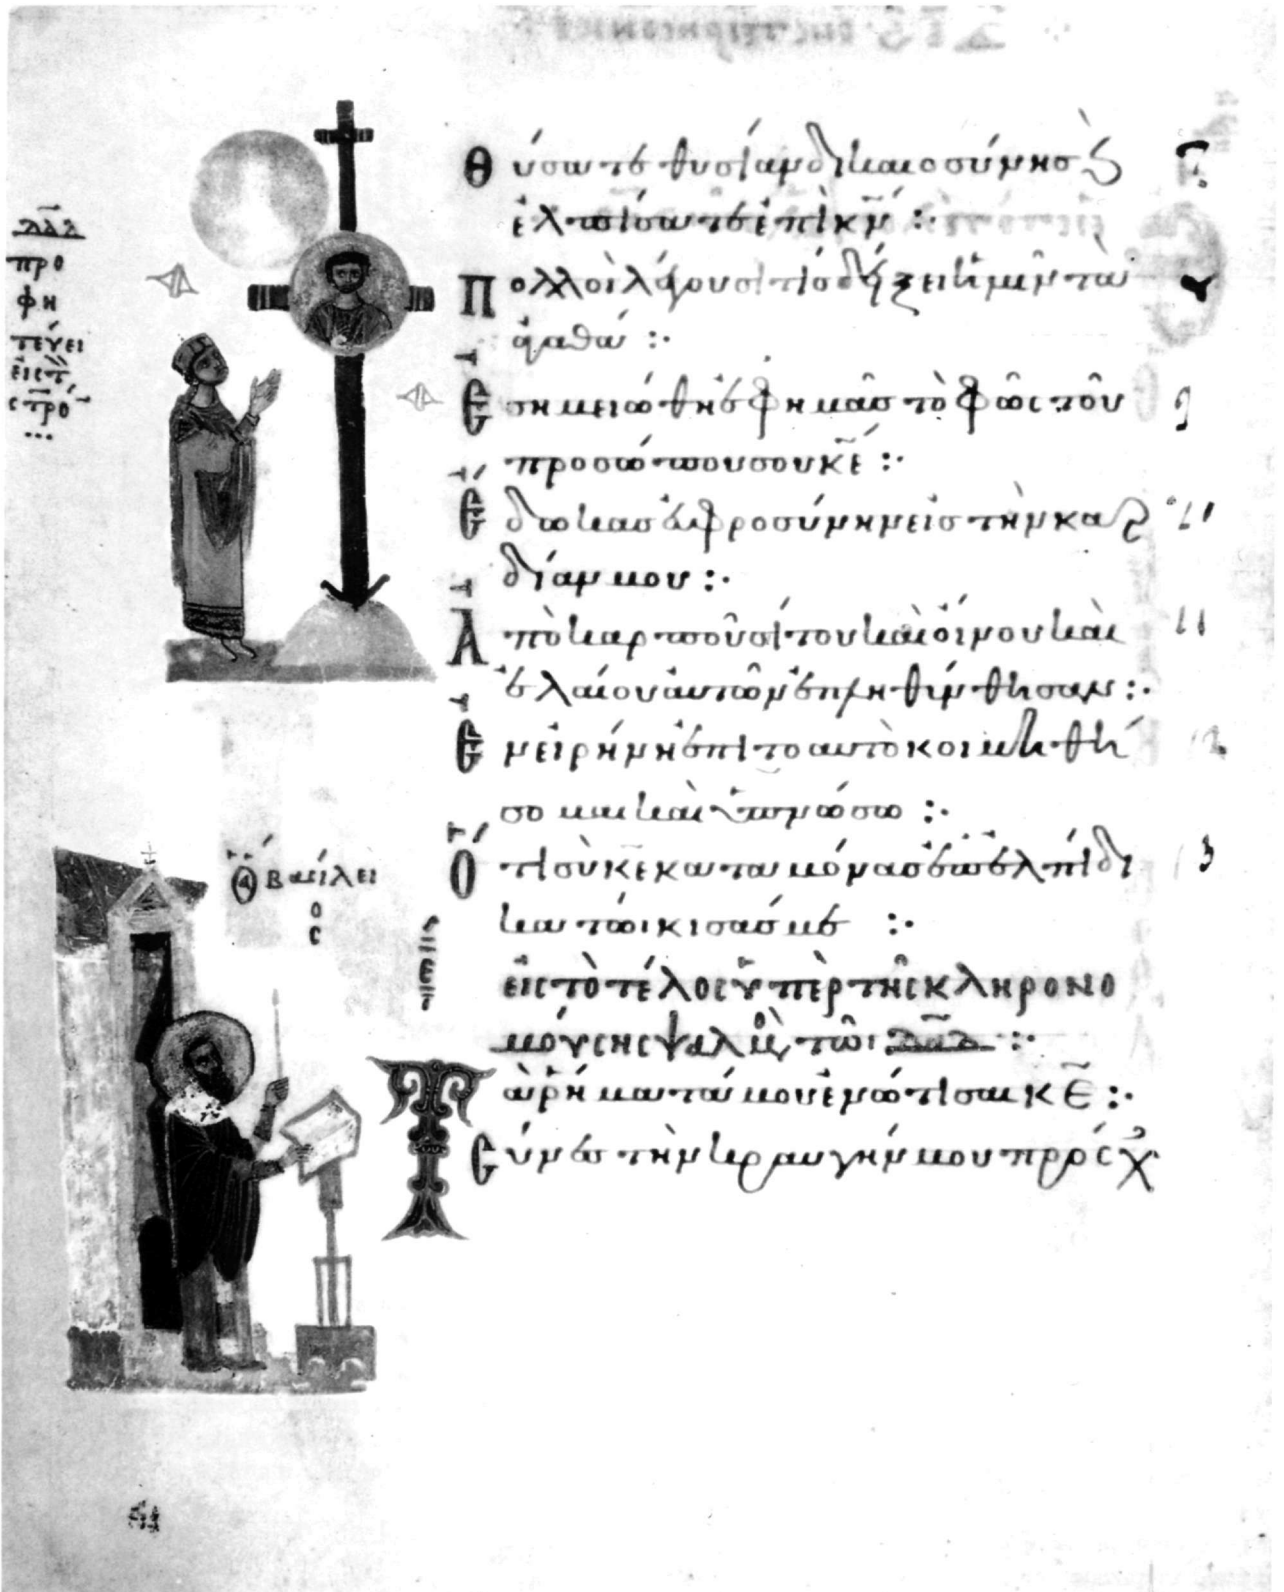 δᾱδ
προ
φη
τεύει
εἰς τ
στρό
Θύσατε θυσίαν δικαιοσύνησ ϗ
ἐλπίσατε ἐπὶ κ̅ν̅ :·
Πολλοὶ λέγουσι τίσ δείξει ἡμῖν τὰ
ἀγαθά :·
Ἐσημειώθη ἐφ ἡμᾶσ τὸ φῶς τοῦ
προσώπου σου κ̅ε̅ :·
Ἔδωκασ εὐφροσύνην εἰσ τὴν καρ
δίαν μου :·
Ἀπὸ καρποῦ σίτου καὶ οἴνου καὶ
ἐλαίου αὐτῶν ἐπληθύνθησαν :·
Ἐν εἰρήνη ἐπι το αυτὸ κοιμηθή
σομαι καὶ ὑπνώσω :·
Ὅτι σὺ κ̅ε̅ κατα μόνασ ἐπ ἐλπίδι
κατώικισάσ με :·
11
12
13
Ὁ ἅ βασίλει
ο
ς
εἰς τὸ τέλος ὑπὲρ τῆς κληρονο
μούσης ψαλμ τῶι δᾱδ :·
Τὰ ῥήματά μου ἐνώτισαι κ̅ε̅ :·
Σύνεσ τὴν κραυγήν μου πρόσχ